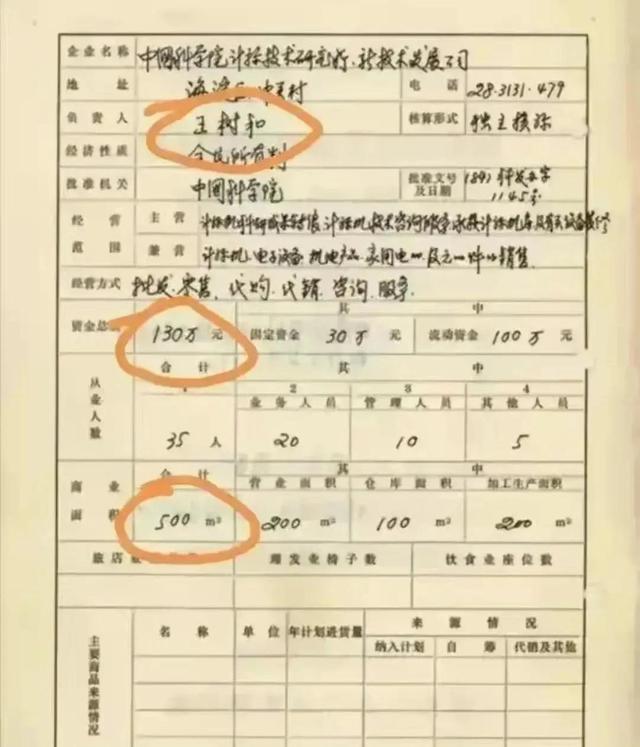 企业名称 中国科学院计标技术研究所新技术发展公司
地址 海淀区中关村 电话 28.3131.479
负责人 王树和 核算形式 独立核标
经济性质 全民所有制
批准机关 中国科学院 批准文号及日期 字1145号
经营范围 主营 计标机科研成果 计标机技术咨询服务
兼营 计标机、电子设备 机电产品 家用电 销售
经营方式 批发 零售 代购 代销 咨询 服务
资金总额 130万元 其中 固定资金 30万元 流动资金 100万元
从业人数 合计 其中
1 2 业务人员 3 管理人员 4 其他人员
35人 20 10 5
商业面积 合计 其中
营业面积 仓库面积 加工生产面积
500 m² 200 m² 100 m² 200 m²
旅店 理发业椅子数 饮食业座位数
主要商品来源情况 名称 单位 年计划进货量 来源情况
纳入计划 自筹 代销及其他